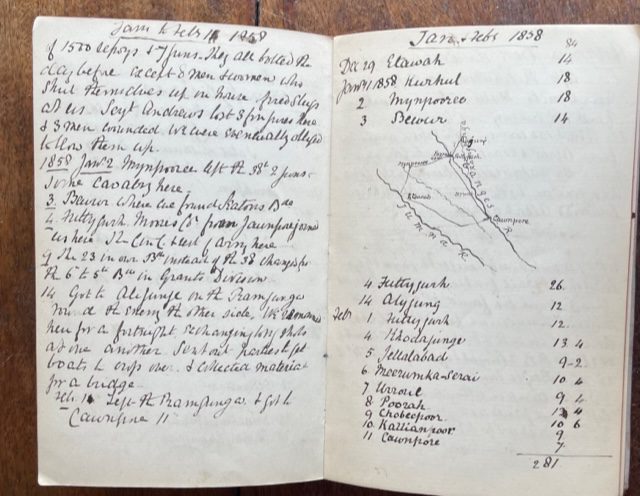 Jany to Feby 11 1858
of 1500 sepoys & 7 guns. They all bolted the
day before except 8 men & women who
shut themselves up in house & fired slugs
at us. Seyt Andrews lost 3 fingers here
& 3 men wounded. We were eventually obliged
to blow them up.
1858 Jany 2 Mynpooree left the 38th 2 guns
some cavalry here
3 Bewur where we found Seatons Bde
4 Futtygurh. from Cawnpore joined
us here. The Cin C & test army here
9 The 23 in our Bde instead of the 38 changed fr
the 6th to 5th Bde in Grants Division
14 Got to Aligunge on the Ramgunga
found the enemy the other side. We remained
here for a fortnight exchanging long shots
at one another. Sent out parties to get
boats to cross over. & collected material
for a bridge.
Feb. 1 Left the Ramgunga & got to
Cawnpore 11
Jany & Feby 1858
84
Dec 29 Etawah 14
Jany 1 1858 Kurhul 18
2 Mynpooree 18
3 Bewur 14
Mynpooree
Etawah
Cawnpore
Jumnah
Ganges R
4 Futtygurh 26
14 Alygung 12
Feby 1 Futtygurh 12
4 Khodagunge 13 4
5 Jellalabad 9-2
6 Meerunka-Serai 10 4
7 Urroul 9 4
8 Poorah 12 4
9 Chobeepoor 10 6
10 Kallianpoor 9
11 Cawnpore 7
281